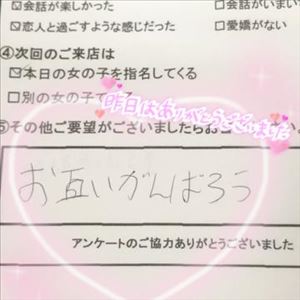 ☑会話が楽しかった □会話がいまい
☑恋人と過ごすような感じだった □愛嬌がない
④次回のご来店は
☑本日の女の子を指名してくる
□別の女の子で
昨日はありがとうございました
⑤その他ご要望がございましたらお
お互いがんばろう
アンケートのご協力ありがとうございました